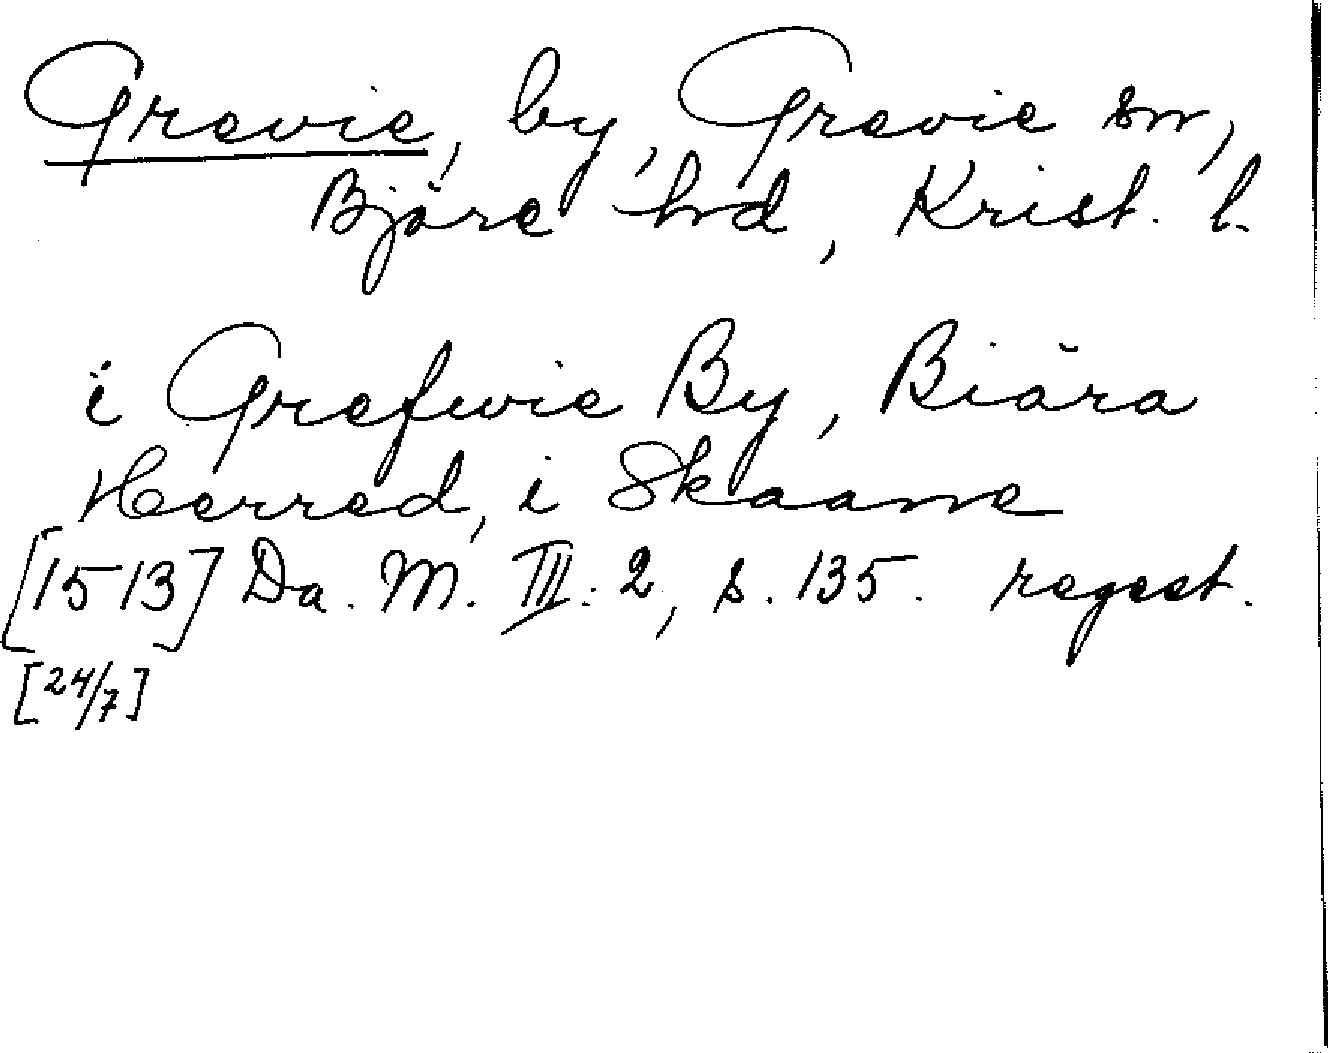 Grevie, by, Grevie sn,
Bjäre hd, Krist. l.
i Grefwie By, Biära
Herred, i Skaane
[1513] Da. M. III: 2, s. 135. regest.
[24/7]